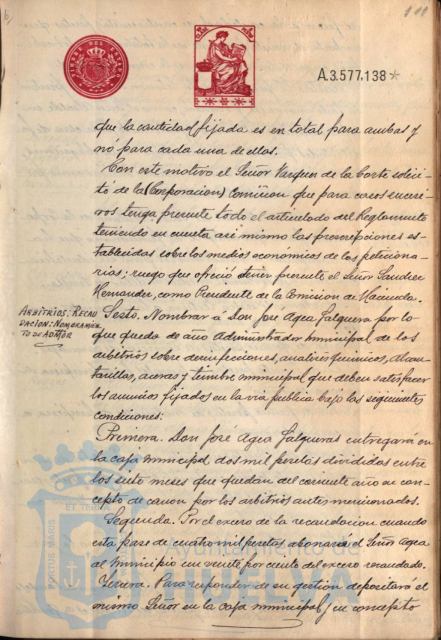 A.3.577.138*
que la cantidad fijada es en total para ambas y
no para cada una de ellas.
Con este motivo el Señor Vazquez de la Corte solici-
tó de la (Corporacion) Comision que para casos sucesi-
vos tenga presente todo el articulado del Reglamento
teniendo en cuenta asi mismo las prescripciones es-
tablecidas sobre los medios económicos de los peticiona-
rios; ruego que ofreció tener presente el Señor Sanchez
Hernandez, como Presidente de la Comision de Hacienda.
ARBITRIOS: RECAU
DACION: NOMBRAMIEN
TO DE ADMOR
Sesto. Nombrar a Don José Agea Salguera por lo
que queda de año Administrador municipal de los
arbitrios sobre desinfecciones, analisis quimicos, Alcan-
tarillas, aceras y timbre municipal que deben satisfacer
los anuncios fijados en la via publica bajo las siguientes
condiciones:
Primera. Don José Agea Salgueras entregará en
la caja municipal dos mil pesetas divididas entre
los siete meses que quedan del corriente año en con-
cepto de canon por los arbitrios antes mencionados.
Segunda. Por el exceso de la recaudacion cuando
esta pase de cuatro mil pesetas abonará el Señor Agea
al Municipio un veinte por ciento del exceso recaudado.
Tercera. Para responder de su gestion depositará el
mismo Señor en la caja municipal y en concepto
Ayuntamiento de
HUELVA
PORTUS MARIS
ET TERRAE